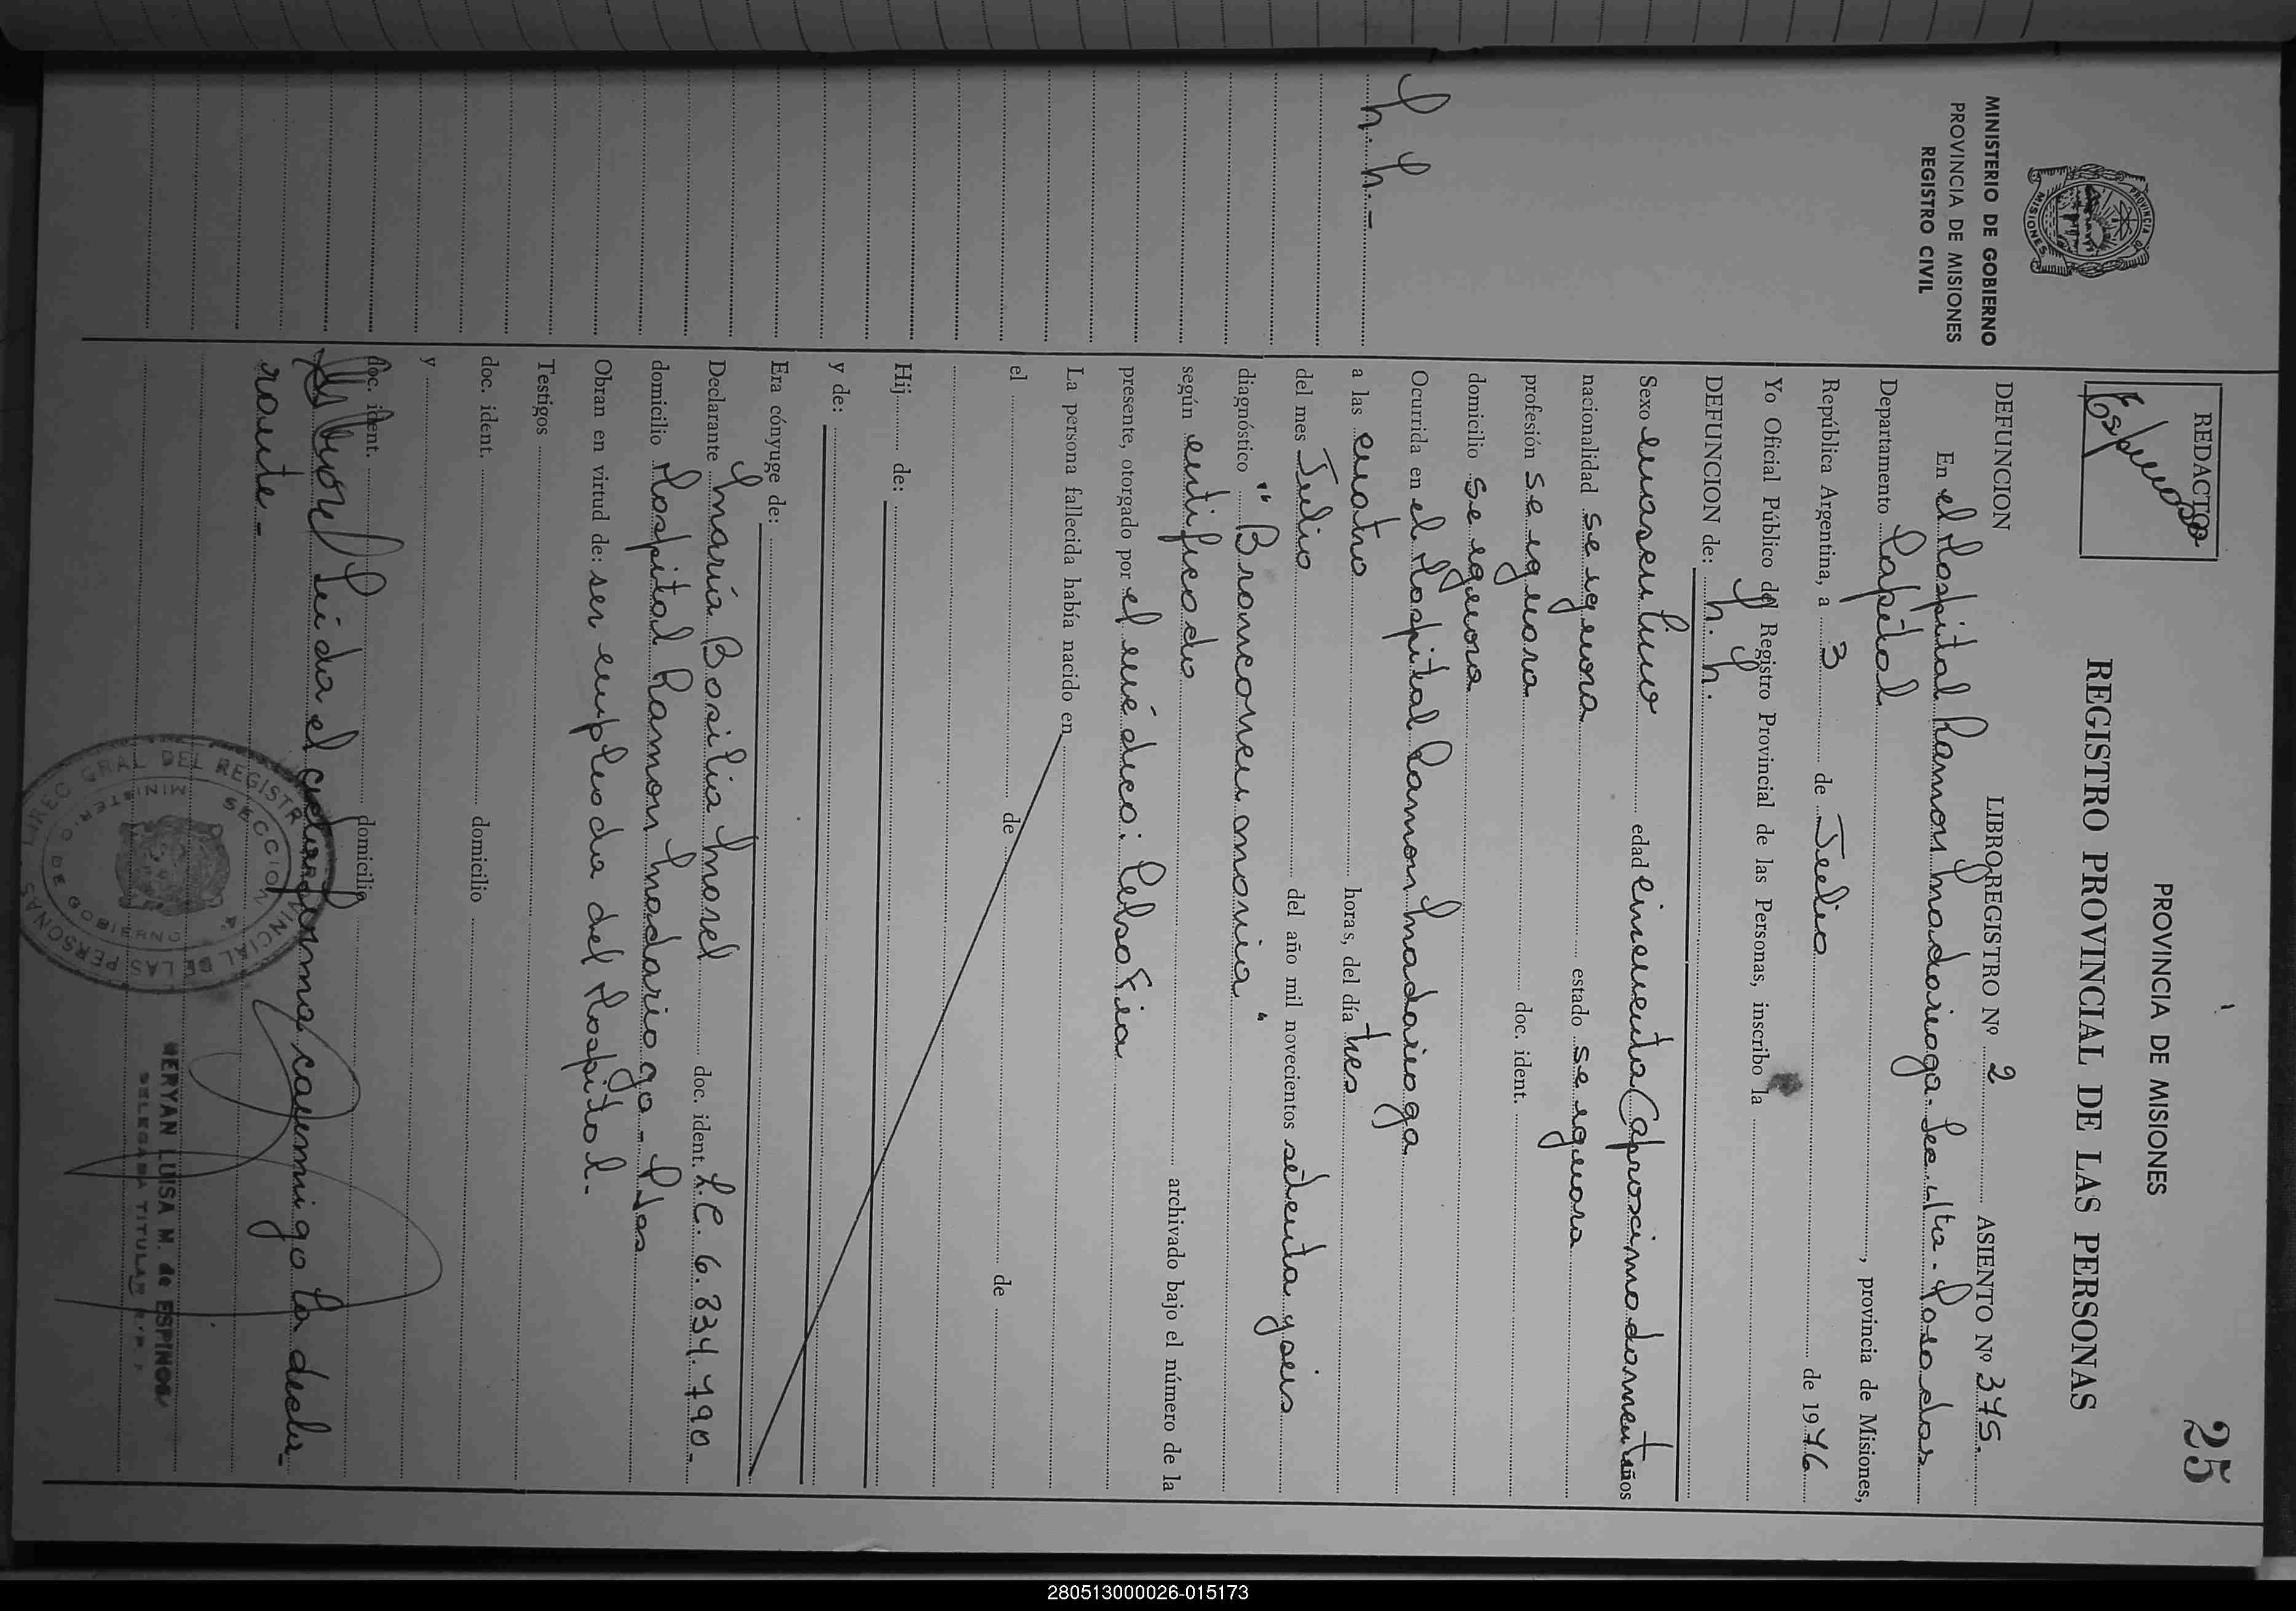 25
PROVINCIA DE MISIONES
REGISTRO PROVINCIAL DE LAS PERSONAS
REDACTOR
MINISTERIO DE GOBIERNO
PROVINCIA DE MISIONES
REGISTRO CIVIL
N. N. -
DEFUNCION LIBRO REGISTRO Nº 2 ASIENTO Nº 375.
En el Hospital Ramon Madariaga - Sec. 4ta - Posadas
Departamento Capital, provincia de Misiones,
República Argentina, a 3 de Julio de 1976
Yo Oficial Público del Registro Provincial de las Personas, inscribo la
DEFUNCION de: N. N.
Sexo masculino edad cincuenta (aproximadament años
nacionalidad se ignora estado se ignora
profesión se ignora doc. ident.
domicilio se ignora
Ocurrida en el Hospital Ramon Madariaga
a las cuatro horas, del día tres
del mes Julio del año mil novecientos setenta y seis
diagnóstico "Bronconeumonia"
según certificado archivado bajo el número de la
presente, otorgado por el médico: Celso
La persona fallecida había nacido en
el de de
Hij de:
y de:
Era cónyuge de:
Declarante María Basilia Morel doc. ident. L.C. 6.334.790-
domicilio Hospital Ramon Madariaga - Pdas
Obran en virtud de: ser empleada del Hospital-
Testigos
doc. ident. domicilio
y
doc. ident. domicilio
Leida el acta firma conmigo la decla-
rante -
DIREC. GRAL DEL REGISTRO PROVINCIAL DE LAS PERSONAS
SECCION 4a.
MINISTERIO DE GOBIERNO
MERYAN LUISA M. de ESPINOSA
DELEGADA TITULAR R.P.P.
280513000026-015173